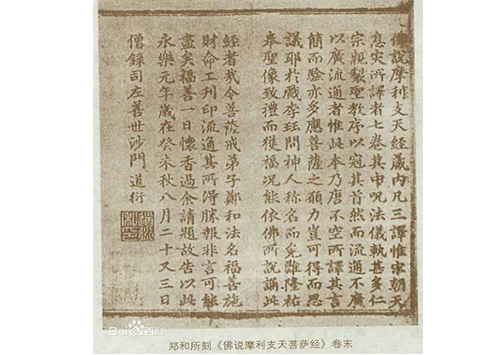 佛說摩利支天經藏內凡三譯惟宋朝天
息災所譯者七卷其中呪法儀軌甚多仁
宗親製聖教序以冠其首然而流通不廣
以廣流通者惟此本乃唐不空所譯其言
簡而驗亦多應菩薩之願力豈可得而思
議耶於戲李珏問神人稱名而免難隆祐
奉聖像致禮而獲福況能依佛所說誦此
經者哉今菩薩戒弟子鄭和法名福善施
財命工刊印流通其所得勝報非言可能
盡矣福善一日懷香過余請題故告以此
永樂元年歲在癸未秋八月二十又三日
僧錄司左善世沙門道衍
Baidu百科
郑和所刻《佛说摩利支天菩萨经》卷末